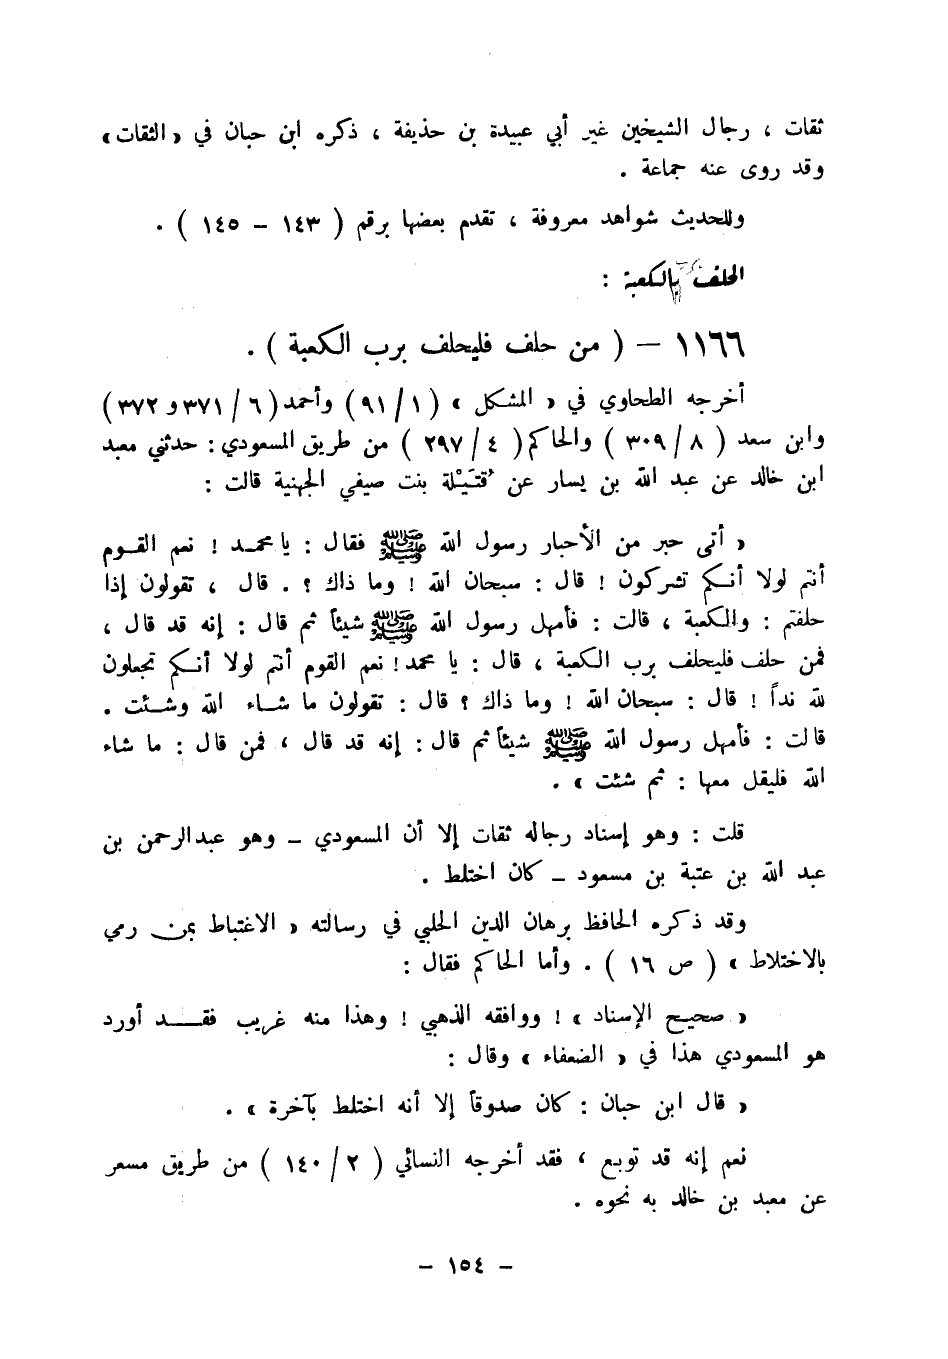 ثقات ، رجال الشيخين غير أبي عبيدة بن حذيفة ، ذكره ابن حبان في « الثقات »
وقد روى عنه جماعة .
وللحديث شواهد معروفة ، تقدم بعضها برقم ( ١٤٣ – ١٤٥ ) .
الحلف بالكعبة :
١١٦٦ – ( من حلف فليحلف برب الكعبة ) .
أخرجه الطحاوي في « المشكل » ( ١ / ٩١ ) وأحمد ( ٦ / ٣٧١ و ٣٧٢ )
وابن سعد ( ٨ / ٣٠٩ ) والحاكم ( ٤ / ٢٩٧ ) من طريق المسعودي : حدثني معبد
ابن خالد عن عبد الله بن يسار عن قُتَيْلة بنت صيفي الجهنية قالت :
« أتى حبر من الأحبار رسول الله ﷺ فقال : يا محمد ! نعم القوم
أنتم لولا أنكم تشركون ! قال : سبحان الله ! وما ذاك ؟ . قال ، تقولون إذا
حلفتم : والكعبة ، قالت : فأمهل رسول الله ﷺ شيئاً ثم قال : إنه قد قال ،
فمن حلف فليحلف برب الكعبة ، قال : يا محمد ! نعم القوم أنتم لولا أنكم تجعلون
لله نداً ! قال : سبحان الله ! وما ذاك ؟ قال : تقولون ما شاء الله وشئت .
قالت : فأمهل رسول الله ﷺ شيئاً ثم قال : إنه قد قال ، فمن قال : ما شاء
الله فليقل معها : ثم شئت » .
قلت : وهو إسناد رجاله ثقات إلا أن المسعودي – وهو عبدالرحمن بن
عبد الله بن عتبة بن مسعود – كان اختلط .
وقد ذكره الحافظ برهان الدين الحلبي في رسالته « الاغتباط بمن رمي
بالاختلاط » ( ص ١٦ ) . وأما الحاكم فقال :
« صحيح الإسناد » ! ووافقه الذهبي ! وهذا منه غريب فقد أورد
هو المسعودي هذا في « الضعفاء » وقال :
« قال ابن حبان : كان صدوقاً إلا أنه اختلط بآخرة » .
نعم إنه قد توبع ، فقد أخرجه النسائي ( ٢ / ١٤٠ ) من طريق مسعر
عن معبد بن خالد به نحوه .
– ١٥٤ –